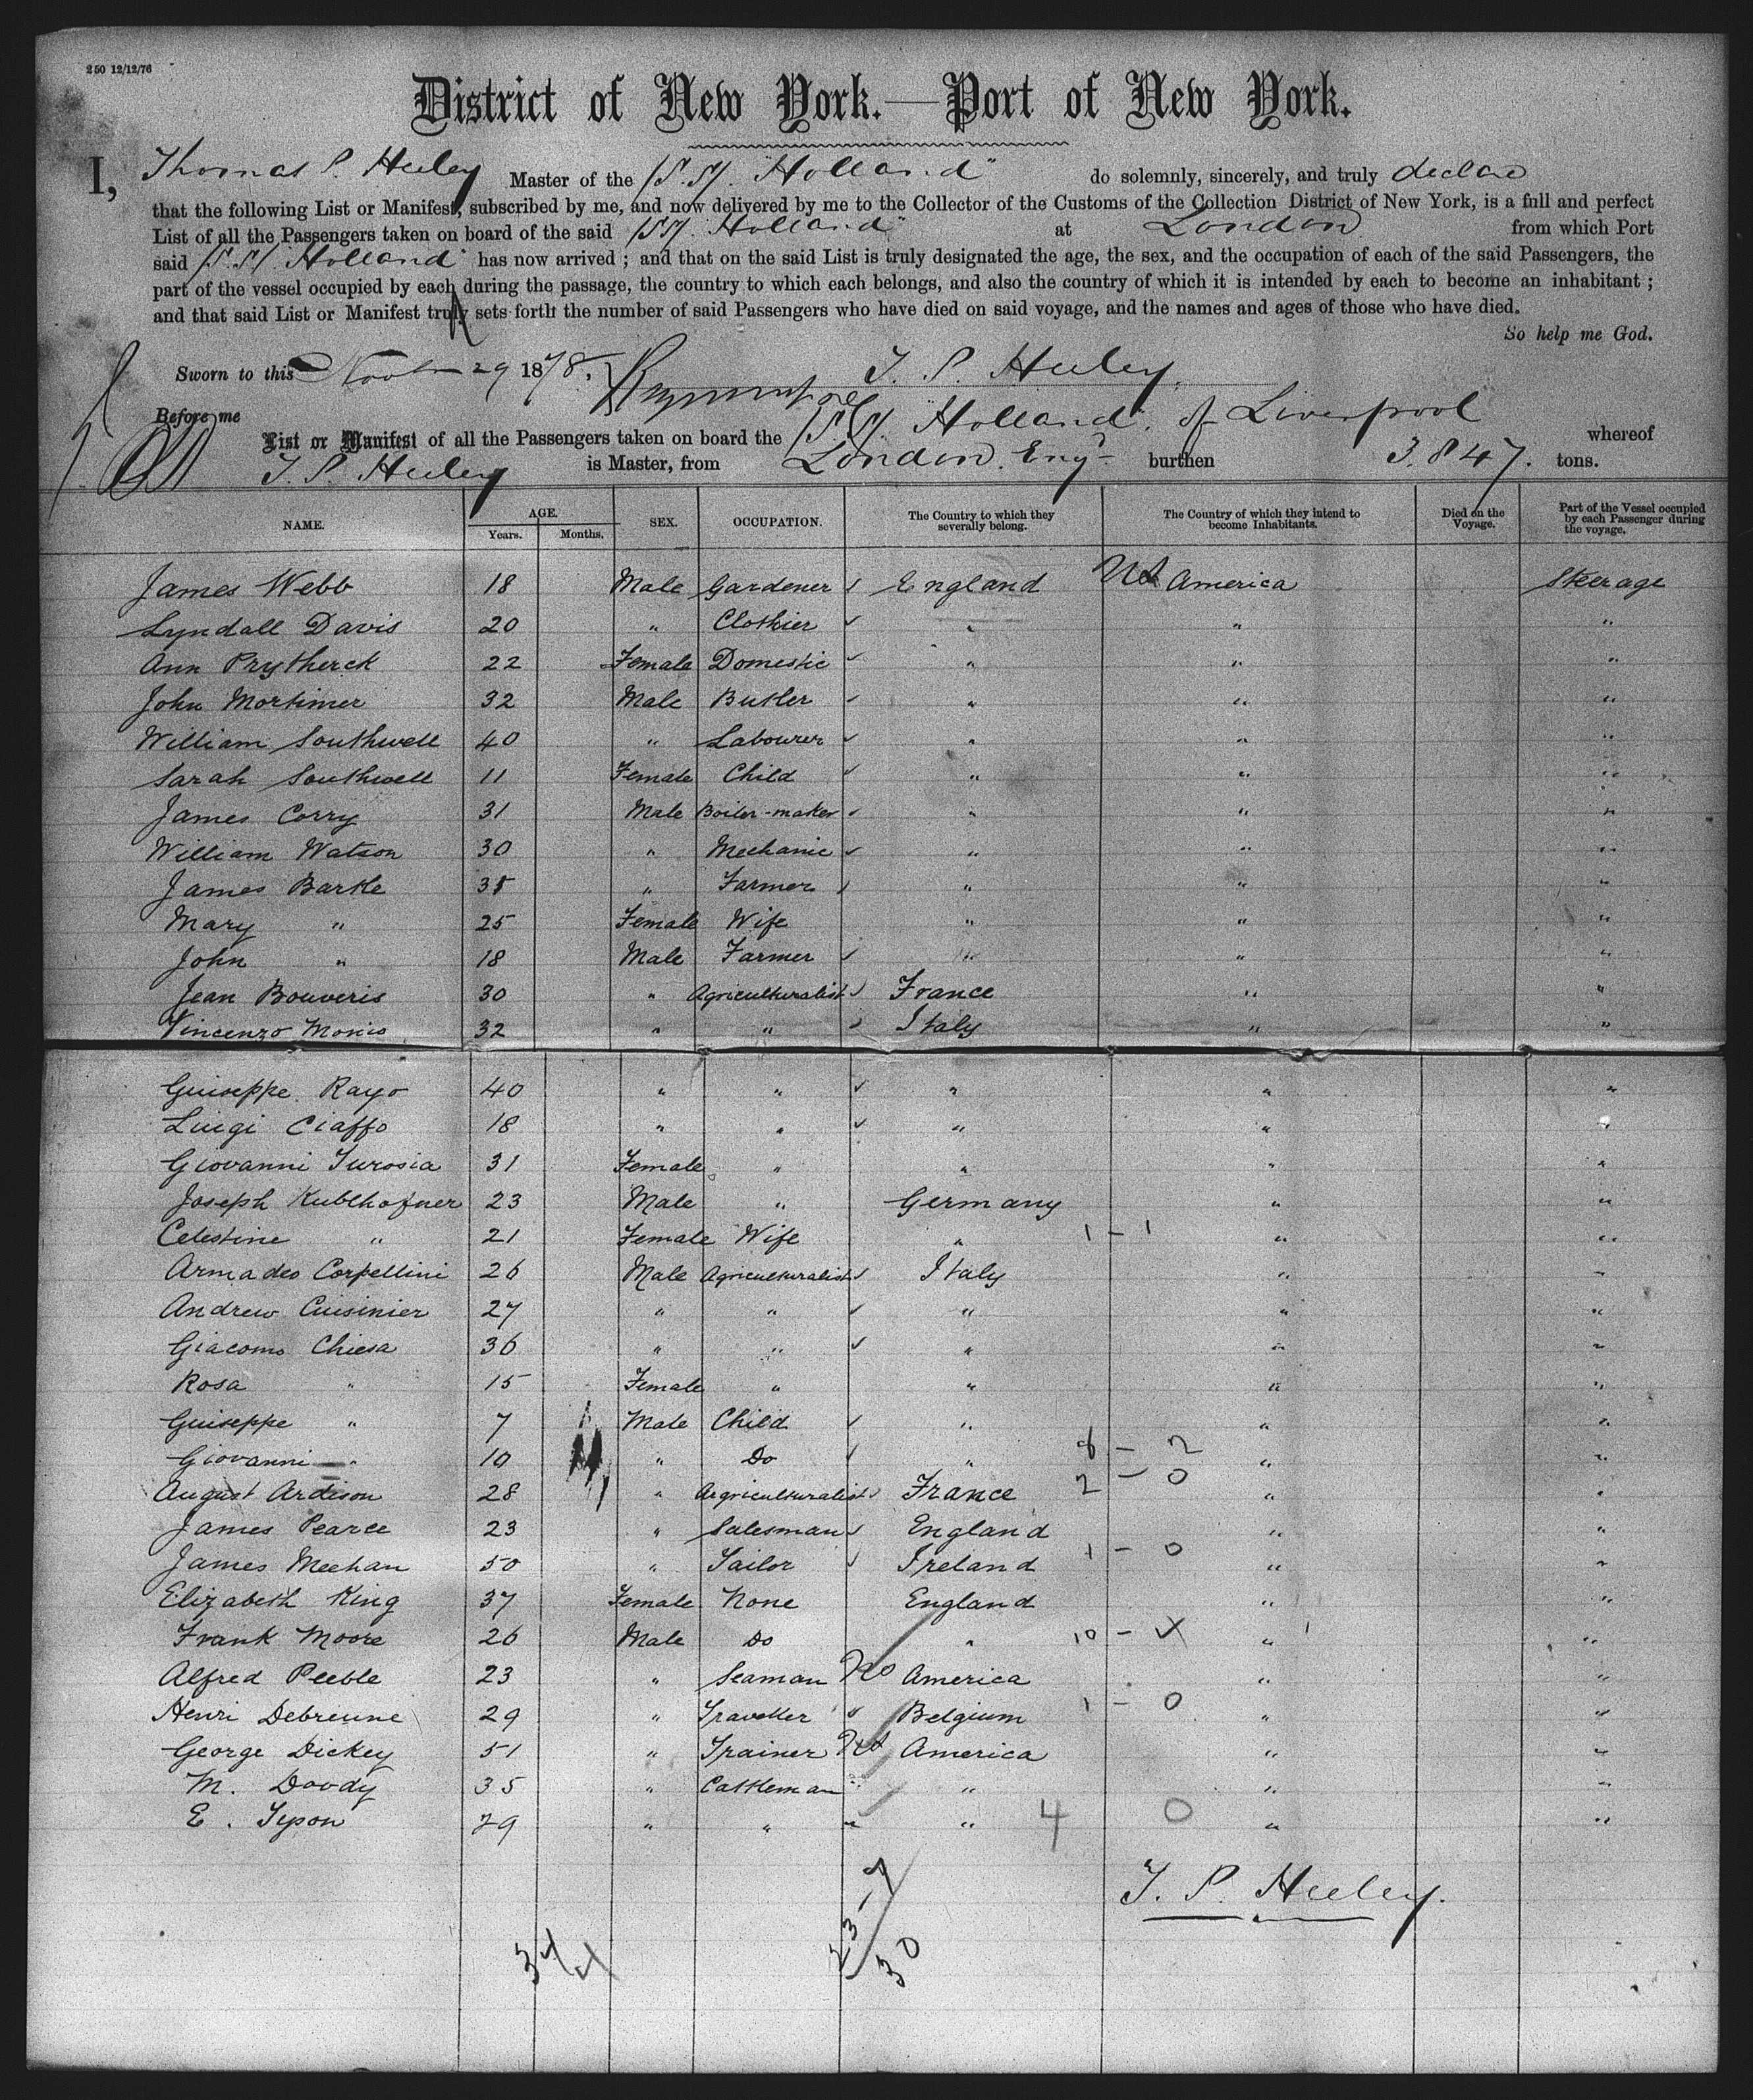 250 12/12/76
District of New York.—Port of New York.
I, Thomas P. Heeley Master of the S.S. "Holland" do solemnly, sincerely, and truly declare
that the following List or Manifest, subscribed by me, and now delivered by me to the Collector of the Customs of the Collection District of New York, is a full and perfect
List of all the Passengers taken on board of the said S.S. "Holland" at London from which Port
said S.S. "Holland" has now arrived ; and that on the said List is truly designated the age, the sex, and the occupation of each of the said Passengers, the
part of the vessel occupied by each during the passage, the country to which each belongs, and also the country of which it is intended by each to become an inhabitant ;
and that said List or Manifest truly sets forth the number of said Passengers who have died on said voyage, and the names and ages of those who have died.
So help me God.
Sworn to this 29 1878. T. P. Heeley.
Before me
List or Manifest of all the Passengers taken on board the S.S. "Holland". of Liverpool whereof
T. P. Heeley is Master, from London. Eng. burthen 3.847. tons.
NAME. AGE. Years. Months. SEX. OCCUPATION. The Country to which they severally belong. The Country of which they intend to become Inhabitants. Died on the Voyage. Part of the Vessel occupied by each Passenger during the voyage.
James Webb 18 Male Gardener England America Steerage
Lyndall Davis 20 " Clothier " " "
Ann Prytherck 22 Female Domestic " " "
John Mortimer 32 Male Butler " " "
William Southwell 40 " Labourer " " "
Sarah Southwell 11 Female Child " " "
James Corry 31 Male Boiler-maker " " "
William Watson 30 " Mechanic " " "
James Barkle 35 " Farmer " " "
Mary " 25 Female Wife " " "
John " 18 Male Farmer " " "
Jean Bouveris 30 " Agriculturalist France " "
Vincenzo 32 " " Italy " "
Guiseppe Rayo 40 " " " " "
Luigi Ciaffo 18 " " " " "
Giovanni Turosia 31 Female " " " "
Joseph Kublhofner 23 Male " Germany " "
Celestine " 21 Female Wife " 1 - 1 " "
Armadeo Corpellini 26 Male Agriculturalist Italy " "
Andrew Cuisinier 27 " " " " "
Giacomo Chiesa 36 " " " " "
Rosa " 15 Female " " " "
Guiseppe " 7 Male Child " " "
Giovanni " 10 " Do " 8 - 2 " "
August Ardison 28 " Agriculturalist France 2 - 0 " "
James Pearce 23 " Salesman England " "
James Meehan 50 " Tailor Ireland 1 - 0 " "
Elizabeth King 37 Female None England " "
Frank Moore 26 Male Do " 10 - " "
Alfred Peeble 23 " Seaman No America " "
Henri Debreune 29 " Traveller Belgium 1 - 0 " "
George Dickey 51 " Trainer America " "
M. Doody 35 " Cattleman " " "
E. Tyson 29 " " " 4 0 " "
T. P. Heeley.
34
23-7
30